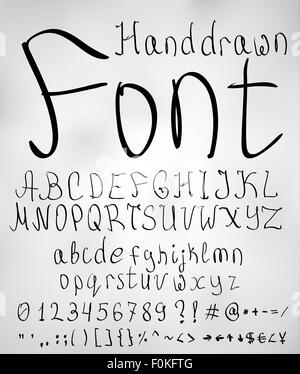 Handdrawn
Font
ABCDEFGHIJKL
MNOPQRTSUVWXYZ
abcdefghijklmn
opqrstuvwxyz
0123456789?!#@*+-=/
"',.:;()[]{}%^~<>→←↑↓$€£¥
alamy stock photo
F0KFTG